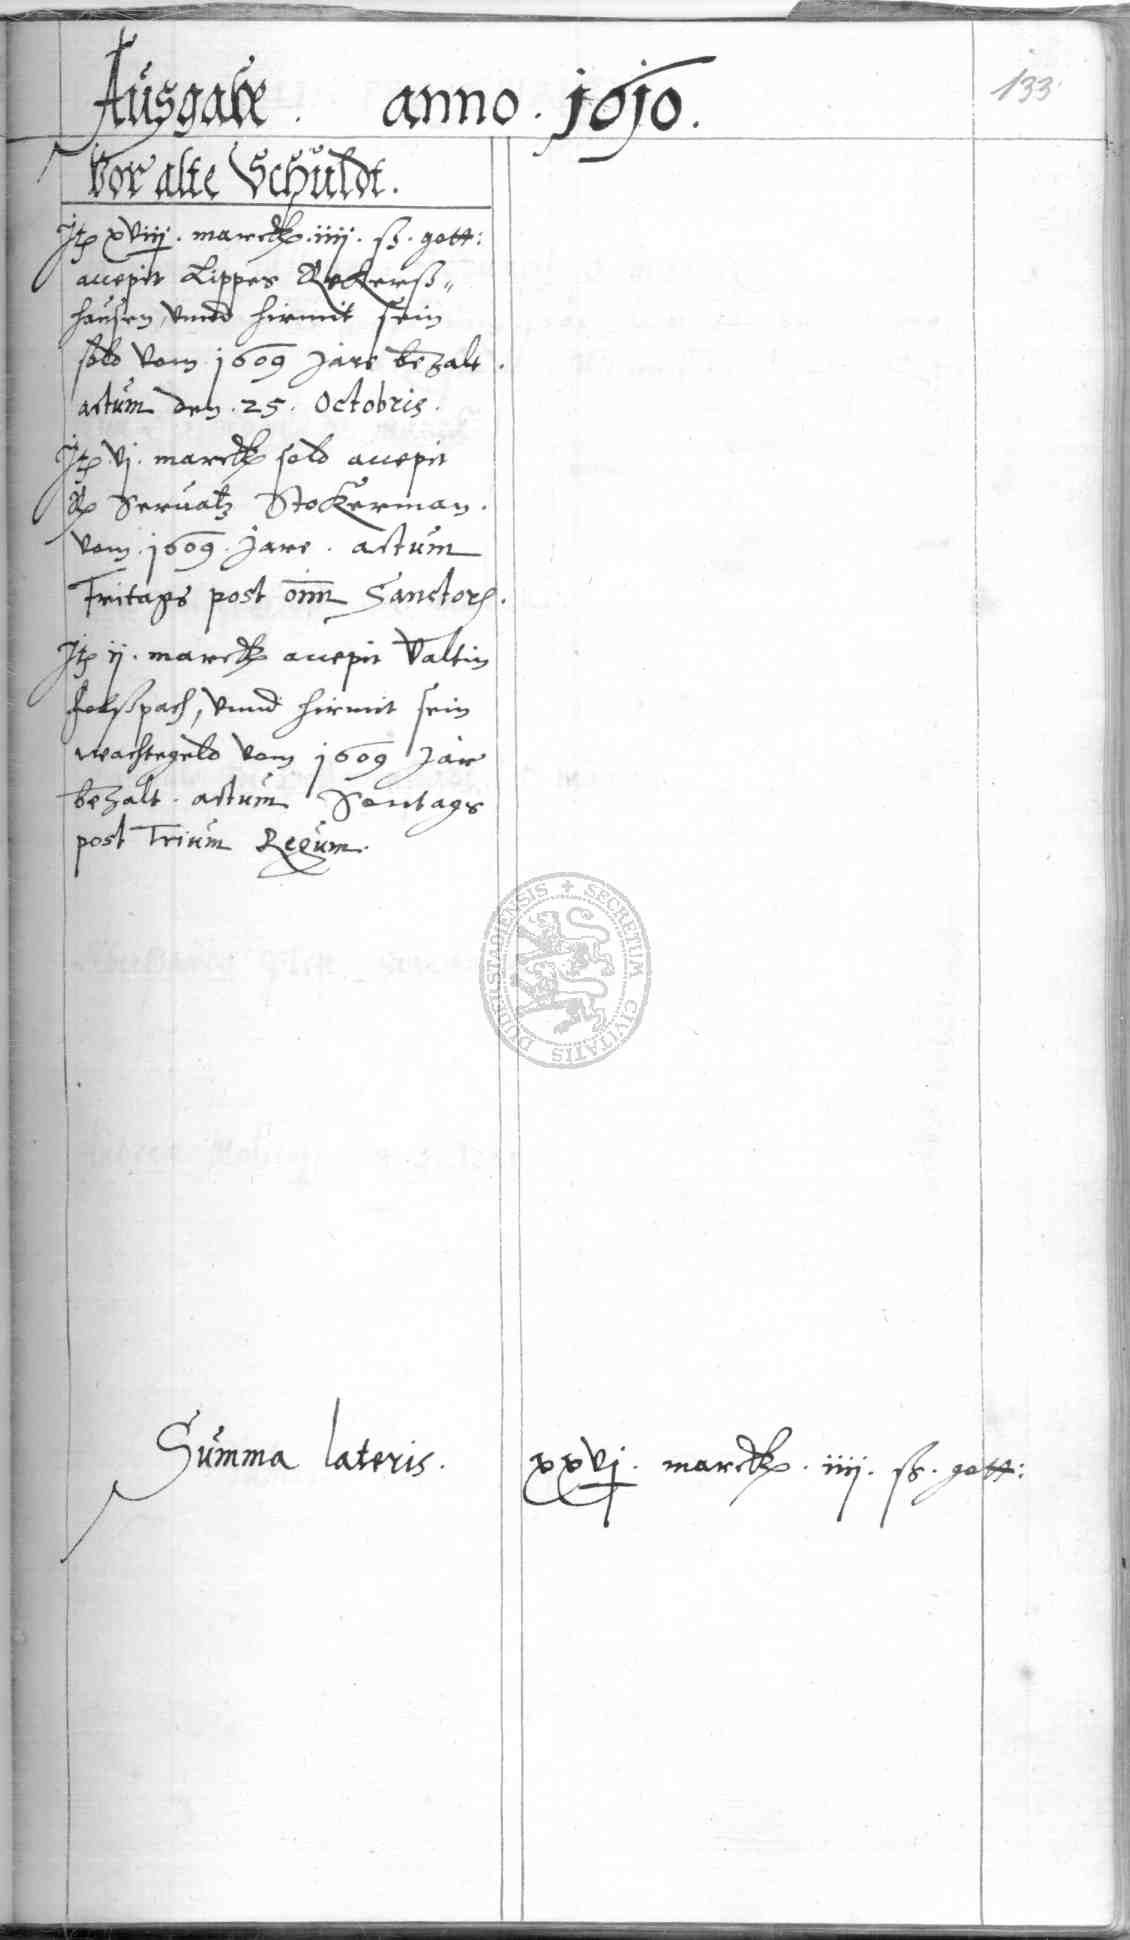 Ausgabe . anno . 1610 .
133
Vor alte Schuldt .
Jt xviij . marck . iiij . ß . gott :
accepit Lippes Rekerß„
hausen, vnnd hirmit sein
sold vom 1609 Jare bezalt .
actum den . 25 . Octobris .
Jt vj . marck sold accepit
Servatz Stokerman .
vom . 1609 . Jare . actum
Fritags post om̅ Sanctor .
Jt ij . marck accepit Valtin
vnnd hirmit sein
wachtegeld vom 1609 Jar
bezalt . actum Sontags
post Trium Regum .
SECRETUM CIVITATIS DUDERSTADIENSIS
Summa lateris . xxvj . marck . iiij . ß . gott :